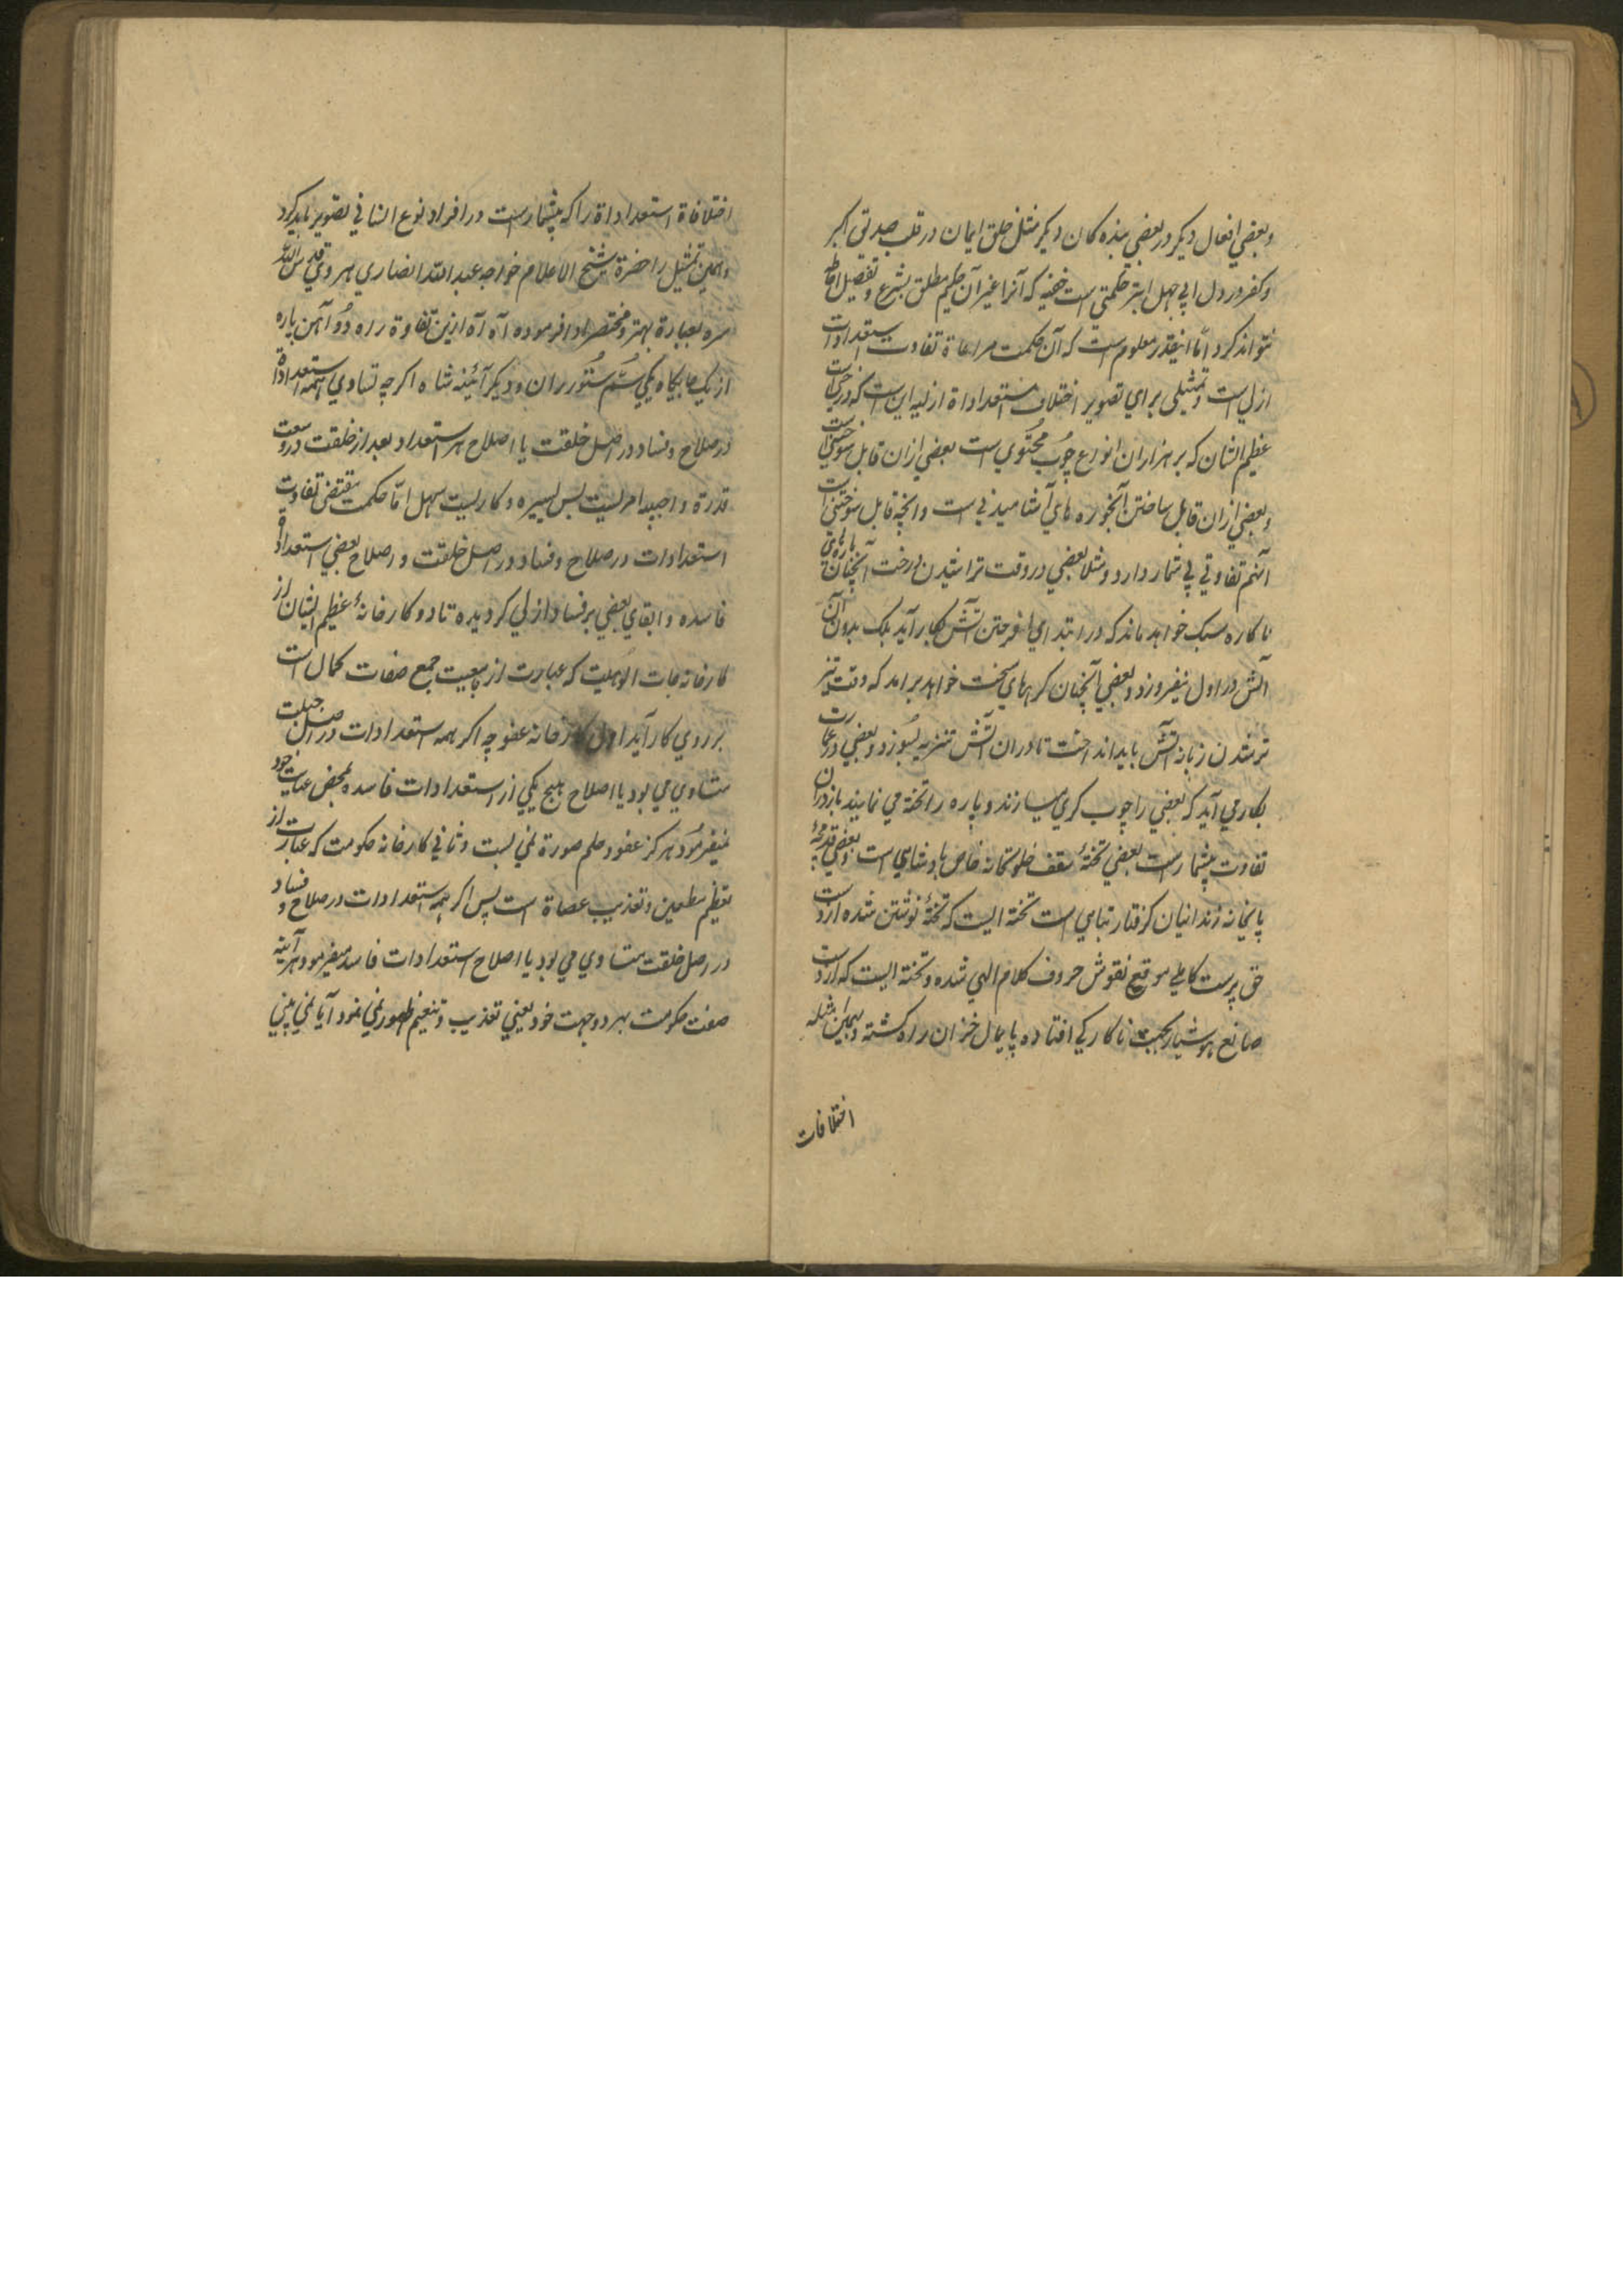 وبعضي افعال ديكر در بعضي بنده كان ديكر مثل خلق ايمان در قلب صديق اكبر
وكفر در دل ابي جهل ابتر حكمتي است خفيه كه آنرا غير آن حكيم مطلق بشرع وتفصيل احاطه
نتواند كرد امّا اينقدر معلوم است كه آن حكمت مراعاة تفاوت استعدادات
ازلي است وتمثيلى براي تصوير اختلاف استعداداة ازليه اين است كه درختيست
عظيم الشان كه بر هزاران انواع چوب محتوي است بعضي ازان قابل سوختنيست
وبعضي ازان قابل ساختن آبخوره هاي آشاميدني است وانچه قابل سوختن است
آنهم تفاوتي بي شمار دارد ومثلا بعضي در وقت تراشيدن درخت آنچنان پارهاي
ناكاره سبك خواهد ماند كه در ابتداي افروختن آتش بكار آيد بلك بدون آن
آتش در اول نيفروزد وبعضي آنچنان كرهاي سخت خواهد برامد كه وقت تيز
تر شدن زبانه آتش بايد انداخت تا دران آتش تيز بسوزد وبعضي در عمارت
بكار مي آيد كه بعضي را چوب كري ميسازند و پاره را تخته مي نمايند باز دران
تفاوت بيشمار است بعضي تختهٔ سقف خلوتخانه خاص پادشاهي است وبعضي قدمچهٔ
پايخانه زندانيان كرفتار تباهي است تخته ايست كه تختهٔ نوشتن شده از دست
حق پرست كاملے موقع نقوش حروف كلام الهي شده وتخته ايست كه از دست
صانع هوشيار بجهت ناكاركي افتاده پايمال خزان راه كشته وبهمين امثله
اختلافات
اختلافاة استعداداة را كه بيشمار است در افراد نوع انساني تصوير بايد كرد
وهمين تمثيل را حضرة شيخ الاعلام خواجه عبد الله انصاري هروي قدس الله
سره بعبارة بهتر ومختصر ادا فرموده آه آه ازين تفاوة راه دو آهن پاره
از يك جايكاه يكي سُم سُتُور ران و ديكر آئينه شاه اكرچه تساوي همه استعداداة
در صلاح وفساد در اصل خلقت يا اصلاح هر استعداد بعد از خلقت در وسعت
قدرة واجبه امريست بس يسيره وكاريست سهل امّا حكمت مقتضى تفاوت
استعدادات در صلاح وفساد در اصل خلقت و اصلاح بعضي استعداداة
فاسده وابقاي بعضي بر فساد ازلي كرديده تا دو كارخانهٔ عظيم الشان از
كارخانه جات الوهيت كه عبارت از جامعيت جميع صفات كمال است
بر روي كار آيد اول كارخانه عفو چه اكر همه استعدادات در اصل جبلت
متساوي مي بود يا اصلاح هيچ يكي از استعدادات فاسده بمحض عنايت خود
نميفرمُود هركز عفو وحلم صورة نمي بست وثاني كارخانه حكومت كه عبارت از
تعظيم مطيعين وتعذيب عصاة است پس اكر همه استعدادات در صلاح وفساد
در اصل خلقت متساوي مي بود يا اصلاح استعدادات فاسده ميفرمود هر آينه
صفت حكومت بهر دو جهت خود يعني تعذيب وتنعيم ظهور نمي نمود آيا نمي بيني